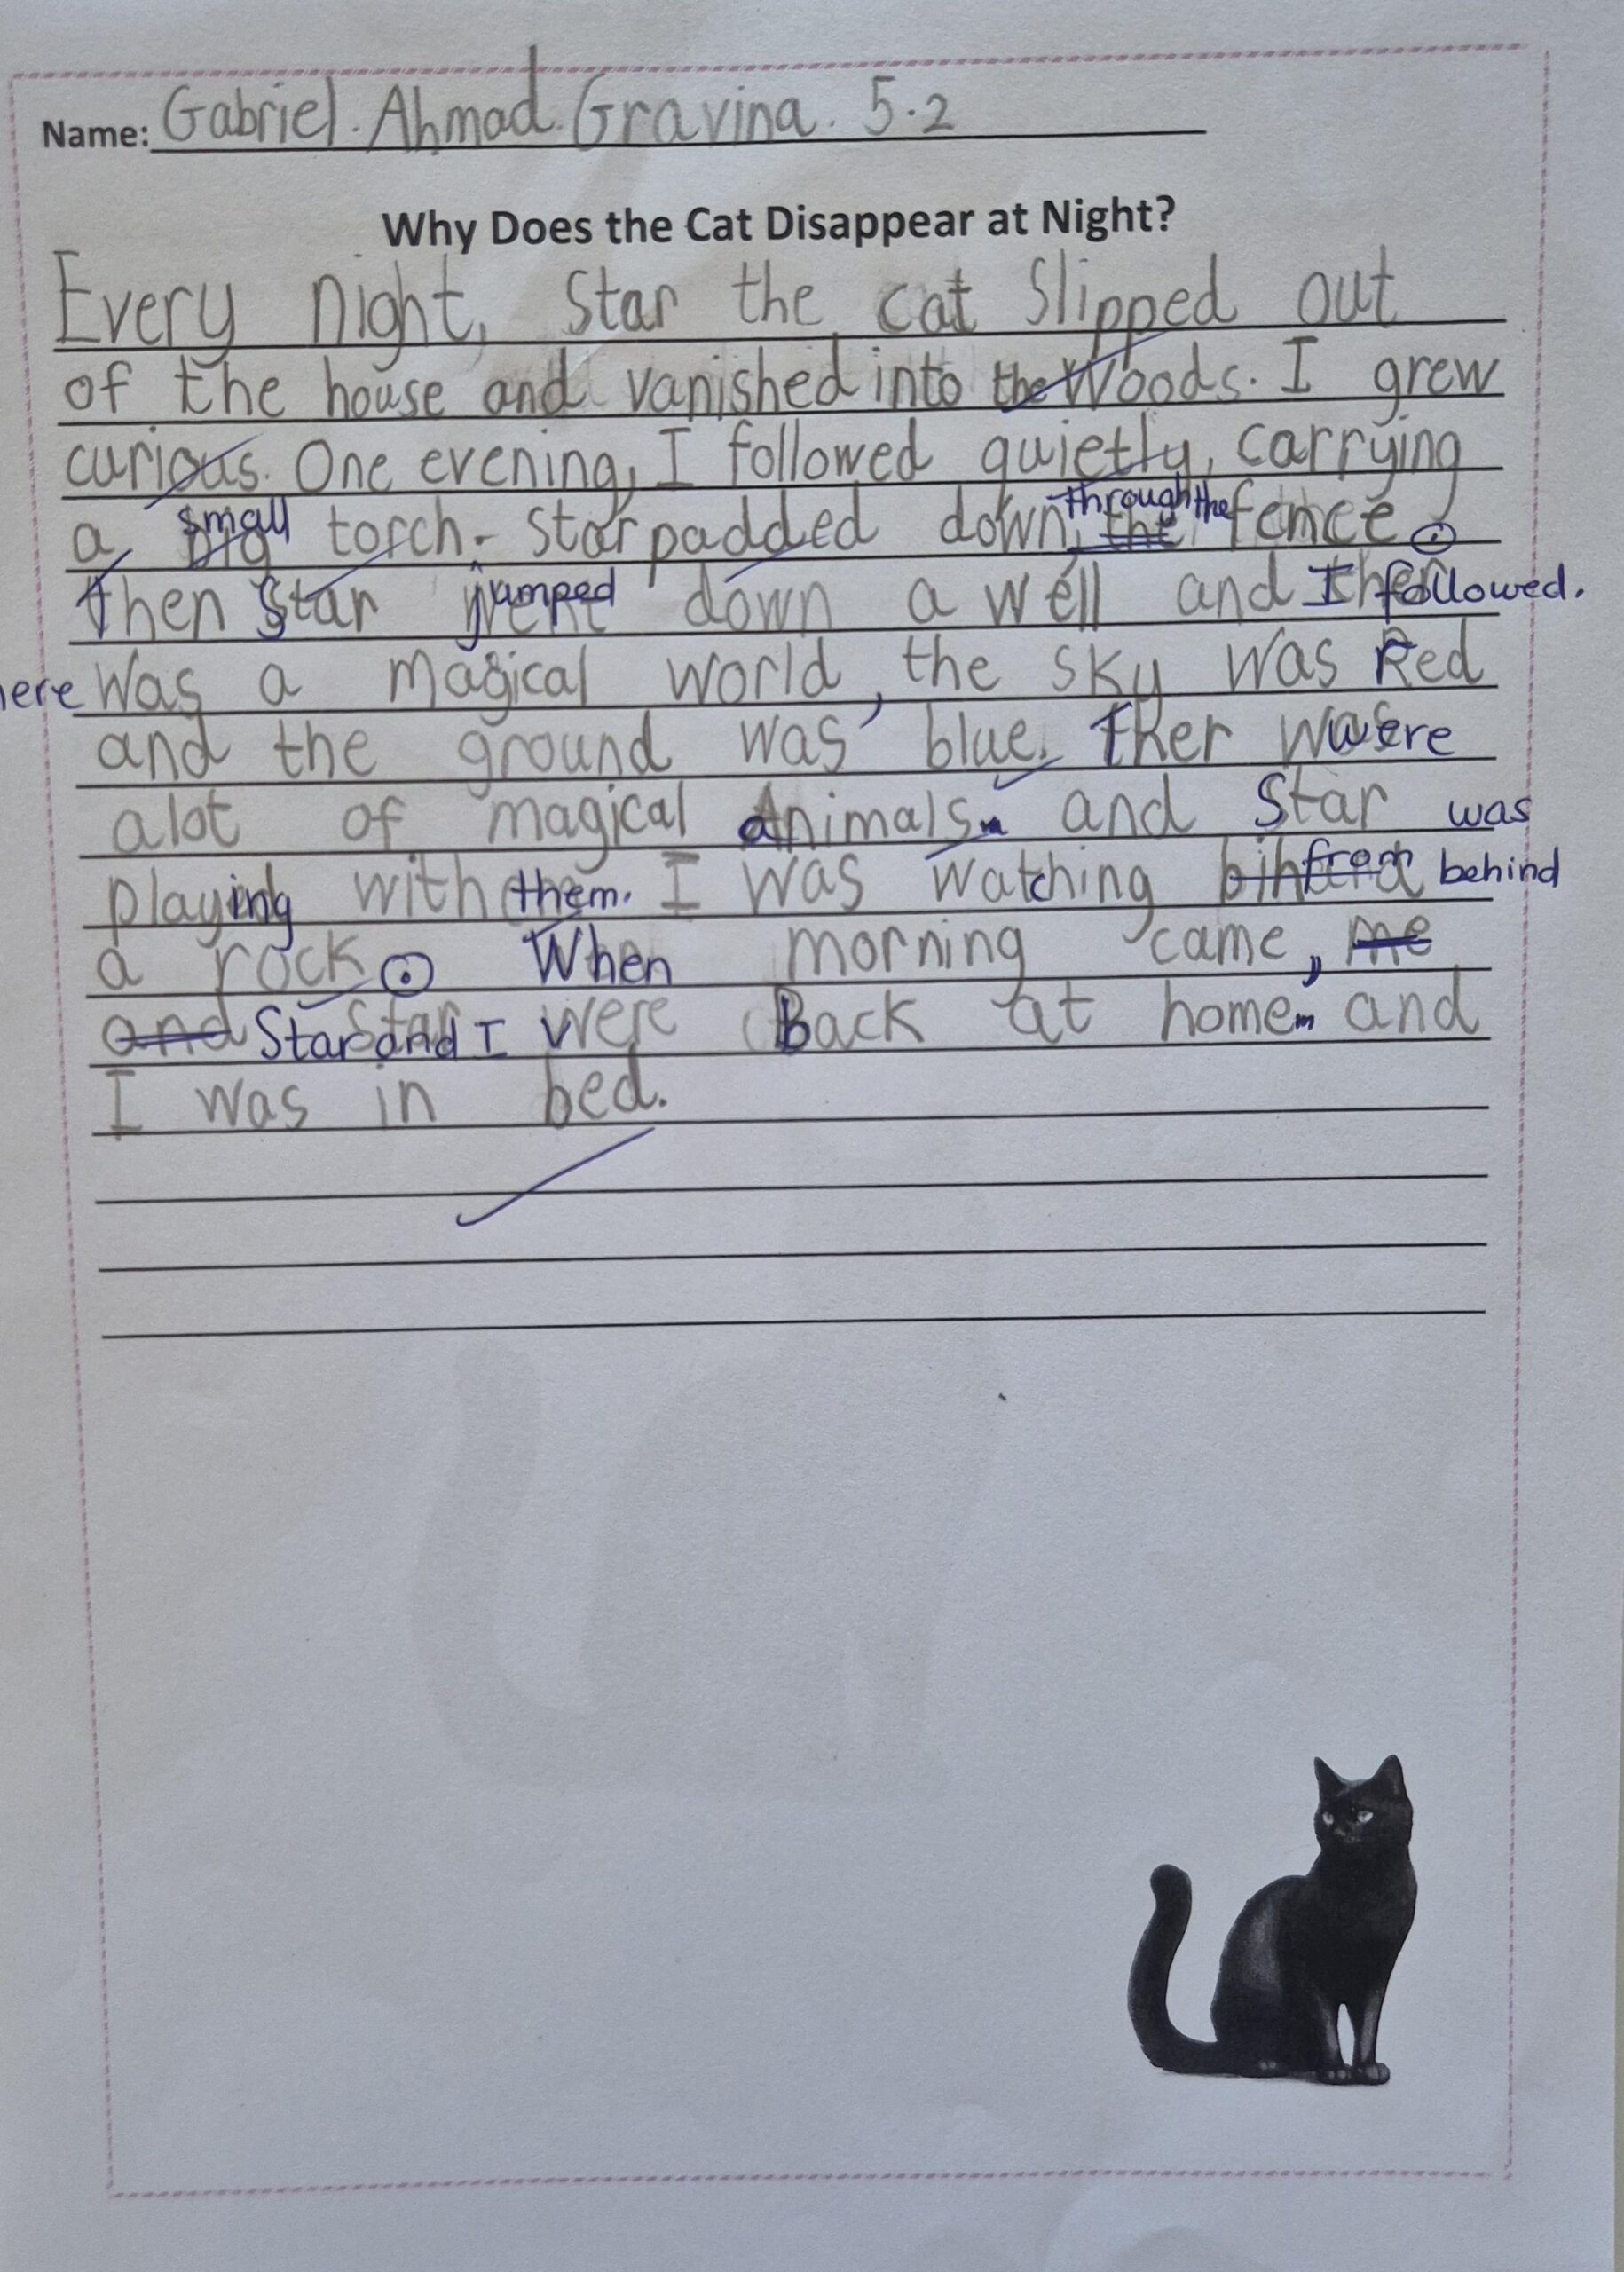 Name: Gabriel. Ahmad. Gravina. 5.2
Why Does the Cat Disappear at Night?
Every night, Star the cat slipped out
of the house and vanished into the Woods. I grew
curious. One evening, I followed quietly, carrying
a small torch. Star padded down, through the fence.
Then Star jumped down a well and I followed.
here was a magical world, the sky was Red
and the ground was blue. Ther were
alot of magical animals and Star was
playing with them. I was watching from behind
a rock. When morning came, me
and Star and I were Back at home and
I was in bed.